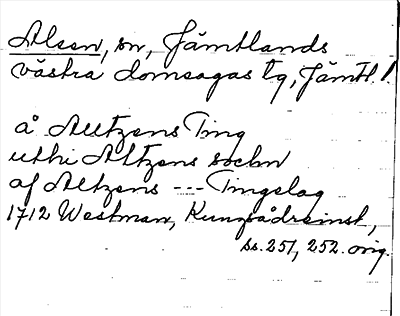 Alsen, sn, Jämtlands
västra domsagas tg, Jämtl. l.
å Alltzens Ting
uthi Altzens sochn
af Altzens --- Tingslag
1712 Westman,
ss. 251, 252. orig.